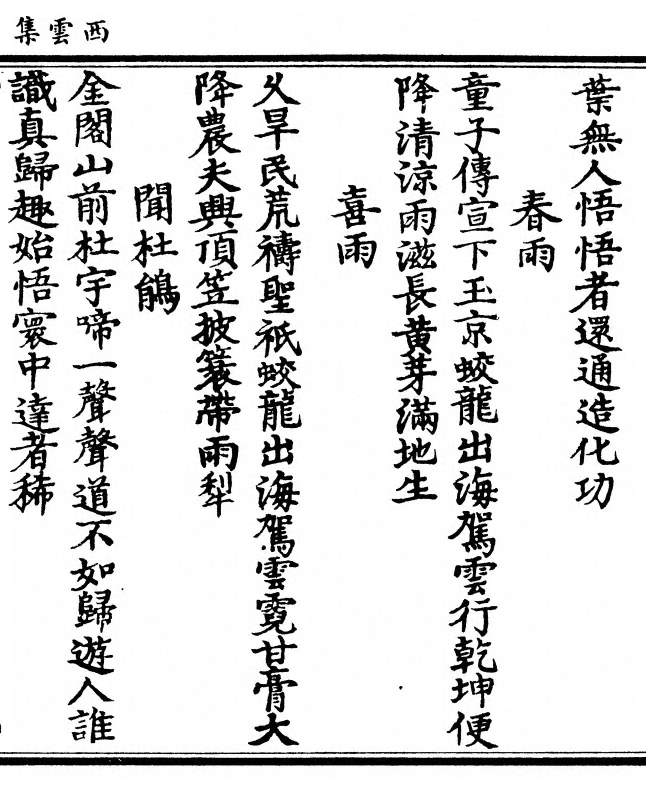 西雲集
葉無人悟悟者還通造化功
春雨
童子傳宣下玉京蛟龍出海駕雲行乾坤便
降清涼雨滋長黃芽滿地生
喜雨
久旱民荒禱聖祇蛟龍出海駕雲霓甘膏大
降農夫興頂笠披簑帶雨犁
聞杜鵑
金閣山前杜宇啼一聲聲道不如歸遊人誰
識真歸趣始悟寰中達者稀